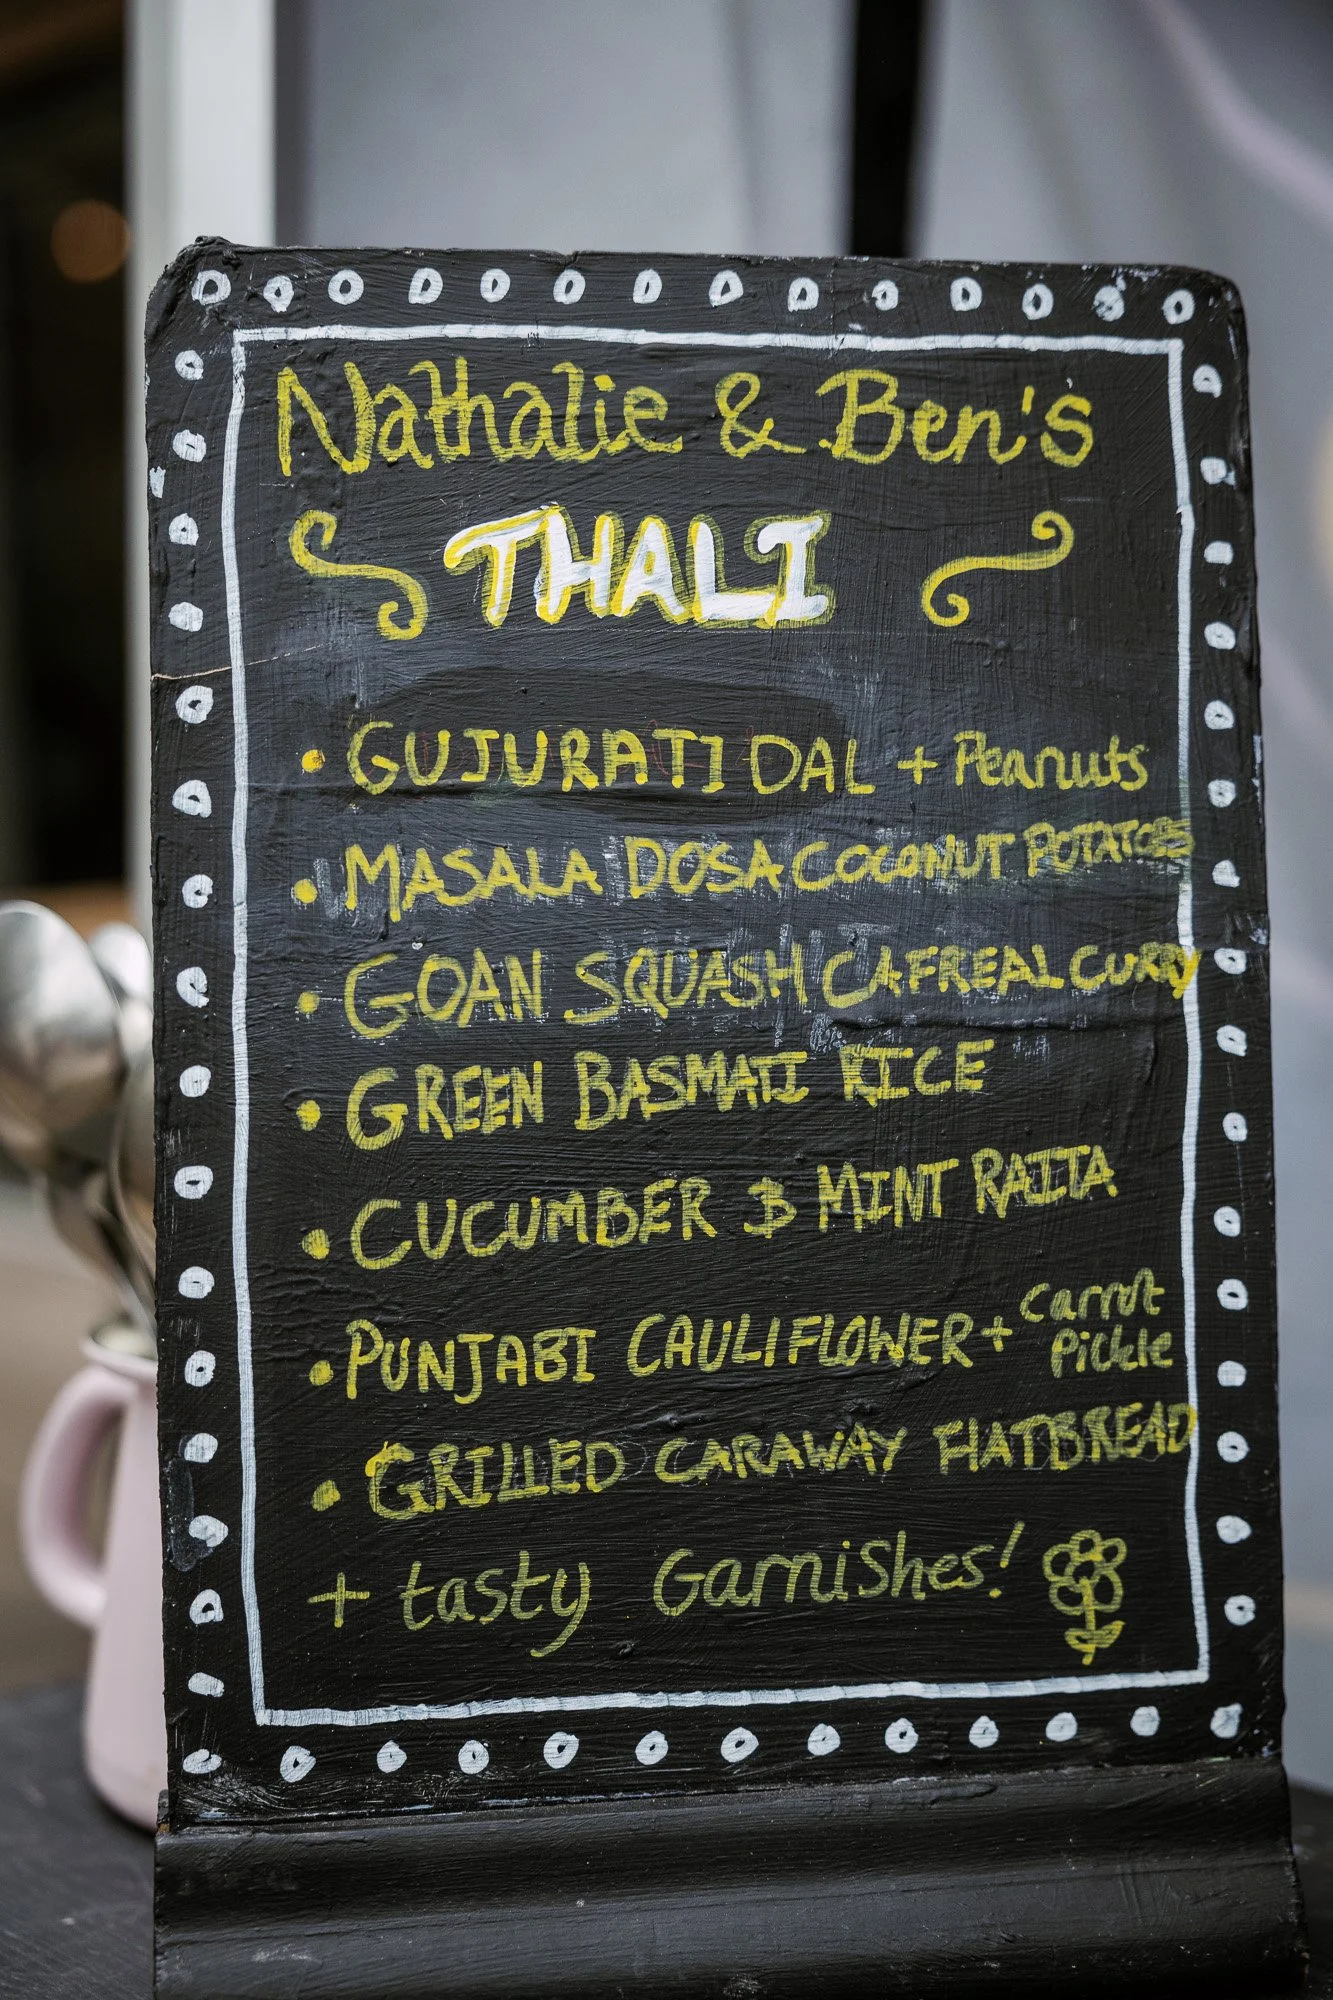 Nathalie & Ben's
THALI
• GUJURATI DAL + Peanuts
• MASALA DOSA COCONUT POTATOES
• GOAN SQUASH CAFREAL CURRY
• GREEN BASMATI RICE
• CUCUMBER & MINT RAITA
• PUNJABI CAULIFLOWER + Carrot Pickle
• GRILLED CARAWAY FLATBREAD
+ tasty Garnishes!